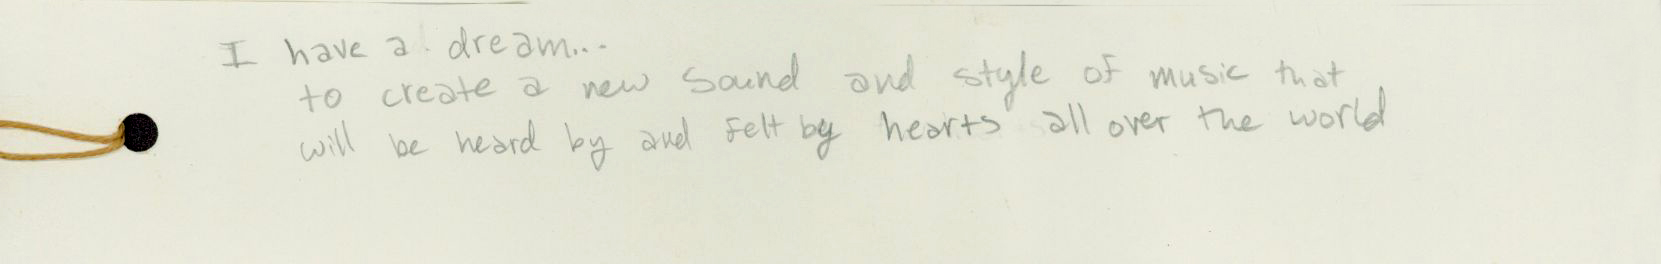 I have a dream...
to create a new sound and style of music that
will be heard by and felt by hearts all over the world